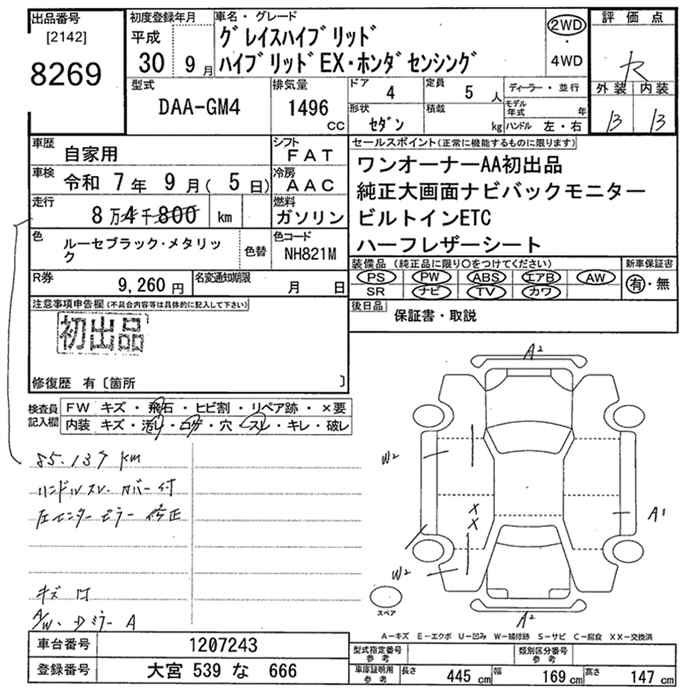 出品番号
[2142]
8269
初度登録年月
平成
30 9月
車名・グレード
グレイスハイブリッド
ハイブリッドEX・ホンダセンシング
2WD
・
4WD
評価点
外装 内装
B B
型式
DAA-GM4
排気量
1496
CC
ドア
4
定員
5 人
ディーラー・並行
形状
セダン
積載
kg
モデル
年式 年
ハンドル 左・右
車歴
自家用
シフト
FAT
車検
令和 7年 9月( 5日)
冷房
AAC
走行
8万4千800 km
燃料
ガソリン
色
ルーセブラック・メタリッ
ク
色替
色コード
NH821M
R券
9,260円
名変通知期限
月 日
セールスポイント(正常に機能するものに限ります)
ワンオーナーAA初出品
純正大画面ナビバックモニター
ビルトインETC
ハーフレザーシート
装備品(純正品に限り○をつけてください)
PS PW ABS エアB AW
SR ナビ TV カワ
新車保証書
有・無
後日品
保証書・取説
注意事項申告欄(不具合内容等は具体的に記入して下さい)
初出品
修復歴 有〔箇所 〕
検査員
記入欄
FW キズ・飛石・ヒビ割・リペア跡・×要
内装 キズ・汚れ・コゲ・穴・スレ・キレ・破レ
85.137 km
ハンドルスレ.カバー付
左センターピラー 修正
キズ 凹
A/W.Dミラー A
A2
W2
X
X
A1
W2
A2
スペア
A−キズ E−エクボ U−凹み W−補修跡 S−サビ C−腐食 XX−交換済
車台番号 1207243
登録番号 大宮 539 な 666
型式指定番号
参考
類別区分番号
参考
車庫証明用
参考
長さ 445cm 幅 169cm 高さ 147cm